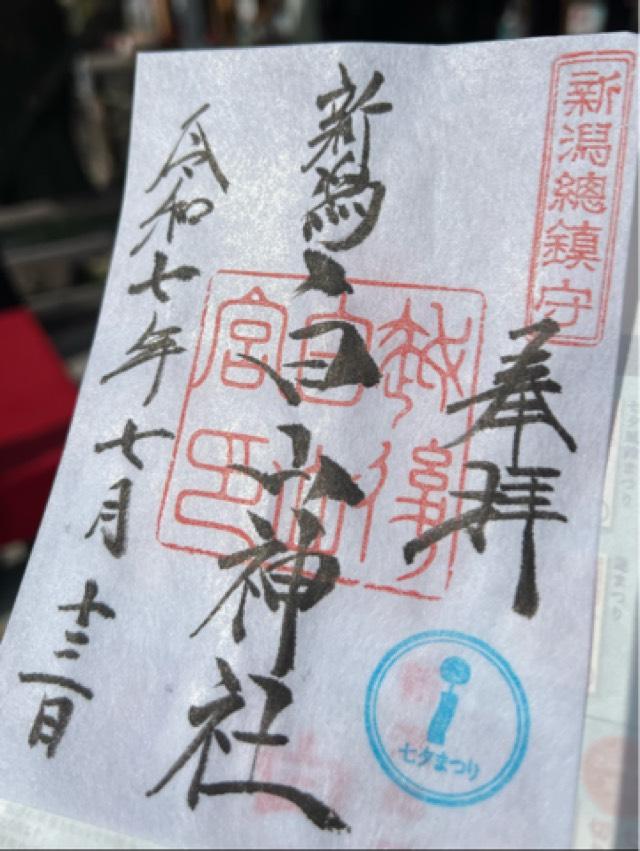 新潟總鎮守
奉拝
越後
白山
宮印
新潟白山神社
令和七年七月十三日
七夕まつり